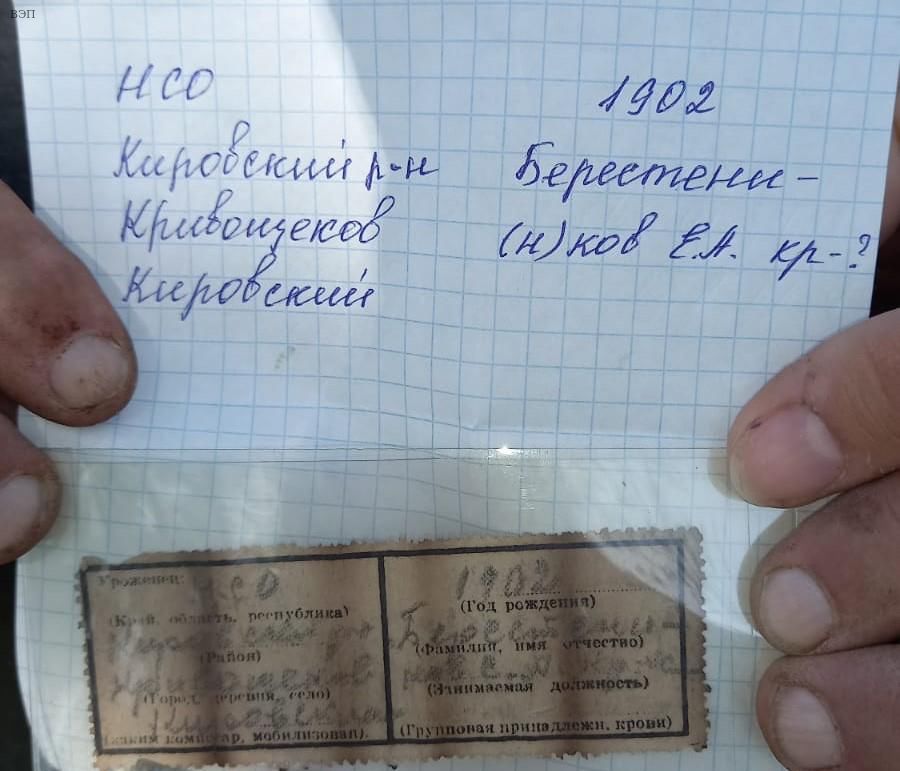 ВЭП
НСО
Кировский р-н
Кривощеков
Кировский
1902
Берестени-
(н)ков Е.А. кр-?
Уроженец: НСО
(Край, область, республика)
(Район)
(Город, деревня, село)
(каким комиссар, мобилизован).
1902
(Год рождения)
(Фамилия, имя отчество)
(Занимаемая должность)
(Групповая принадлежн, крови)